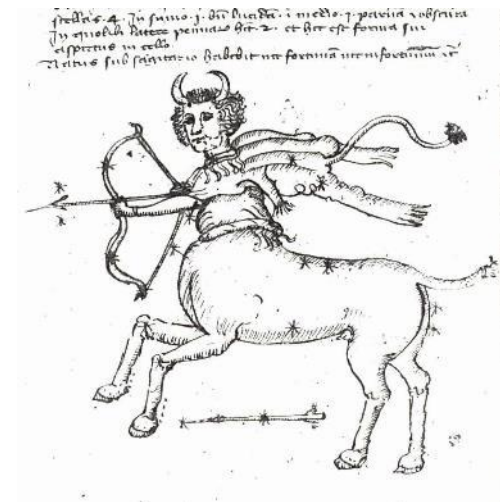 stellas · 4 · In sumo · j · lucidā · i medio · j · parua obscura
In quolibet latere pennato h̄t · 2 · et hec est forma sui
aspectus in cello
Natus sub sagitario habebit nec fortunā nec infortuniū